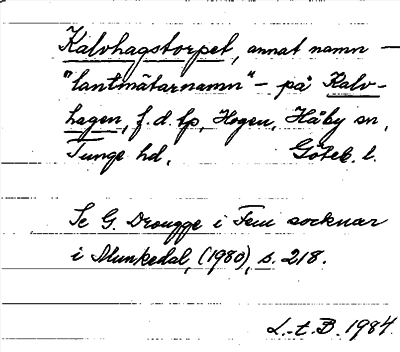 Kalvhagstorpet, annat namn —
"lantmätarnamn" – på Kalv-
hagen, f.d. lp, Hogen, Håby sn,
Tunge hd, Göteb. l.
Se G. Drougge i Fem socknar
i Munkedal, (1980), s. 218.
L.-t. B. 1984.